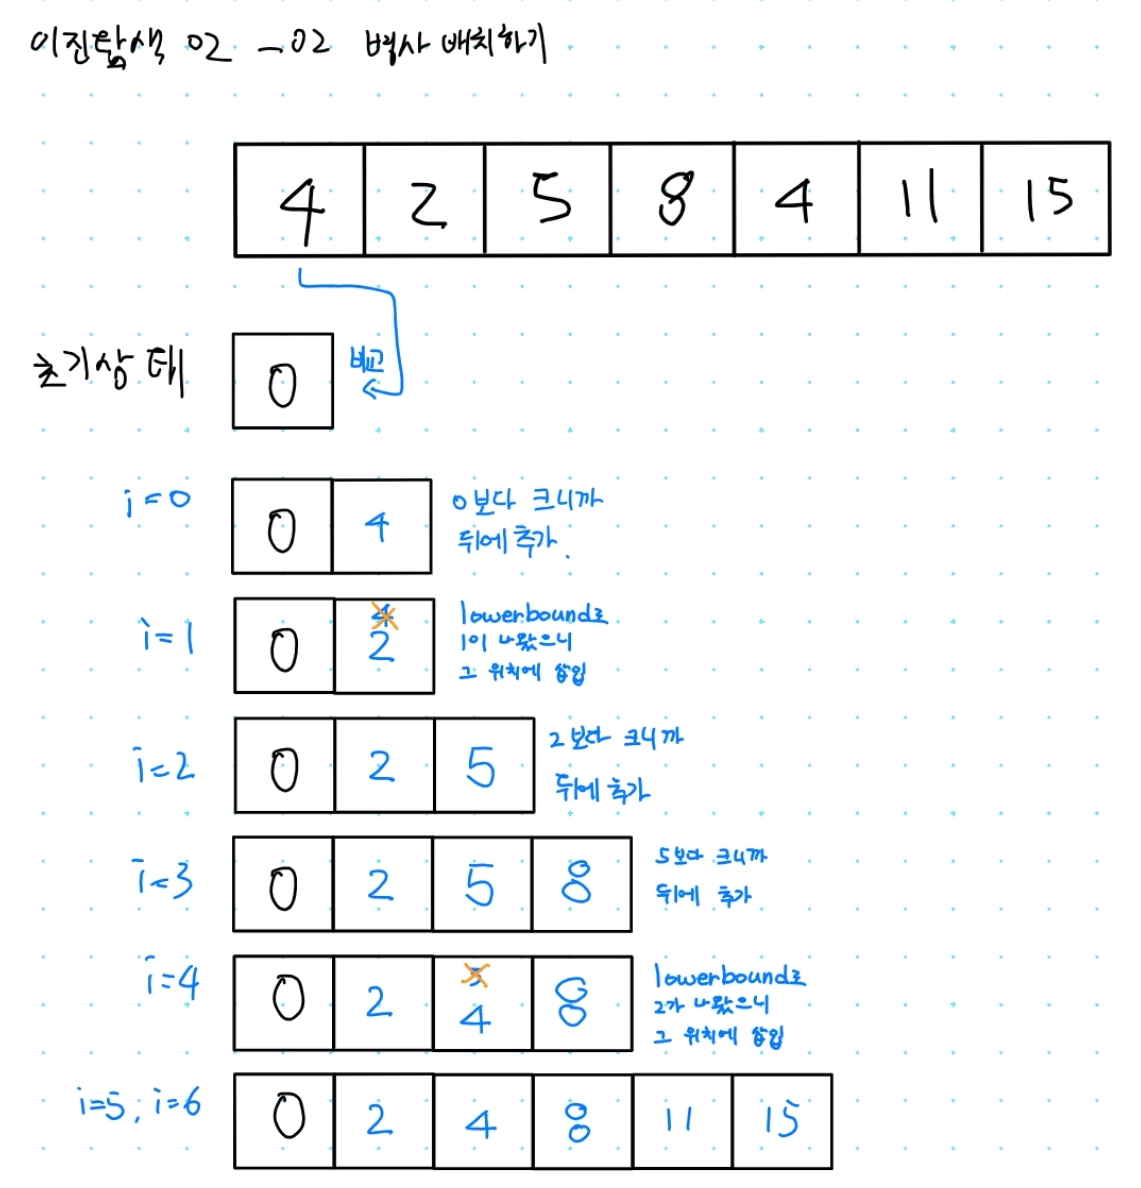 이진탐색 02 _02 병사 배치하기
4 2 5 8 4 11 15
초기상태 0 비교
i=0 0 4 0보다 크니까
뒤에 추가.
i=1 0 4 2 lowerbound로
1이 나왔으니
그 위치에 삽입
i=2 0 2 5 2보다 크니까
뒤에 추가
i=3 0 2 5 8 5보다 크니까
뒤에 추가
i=4 0 2 5 4 8 lowerbound로
2가 나왔으니
그 위치에 삽입
i=5, i=6 0 2 4 8 11 15